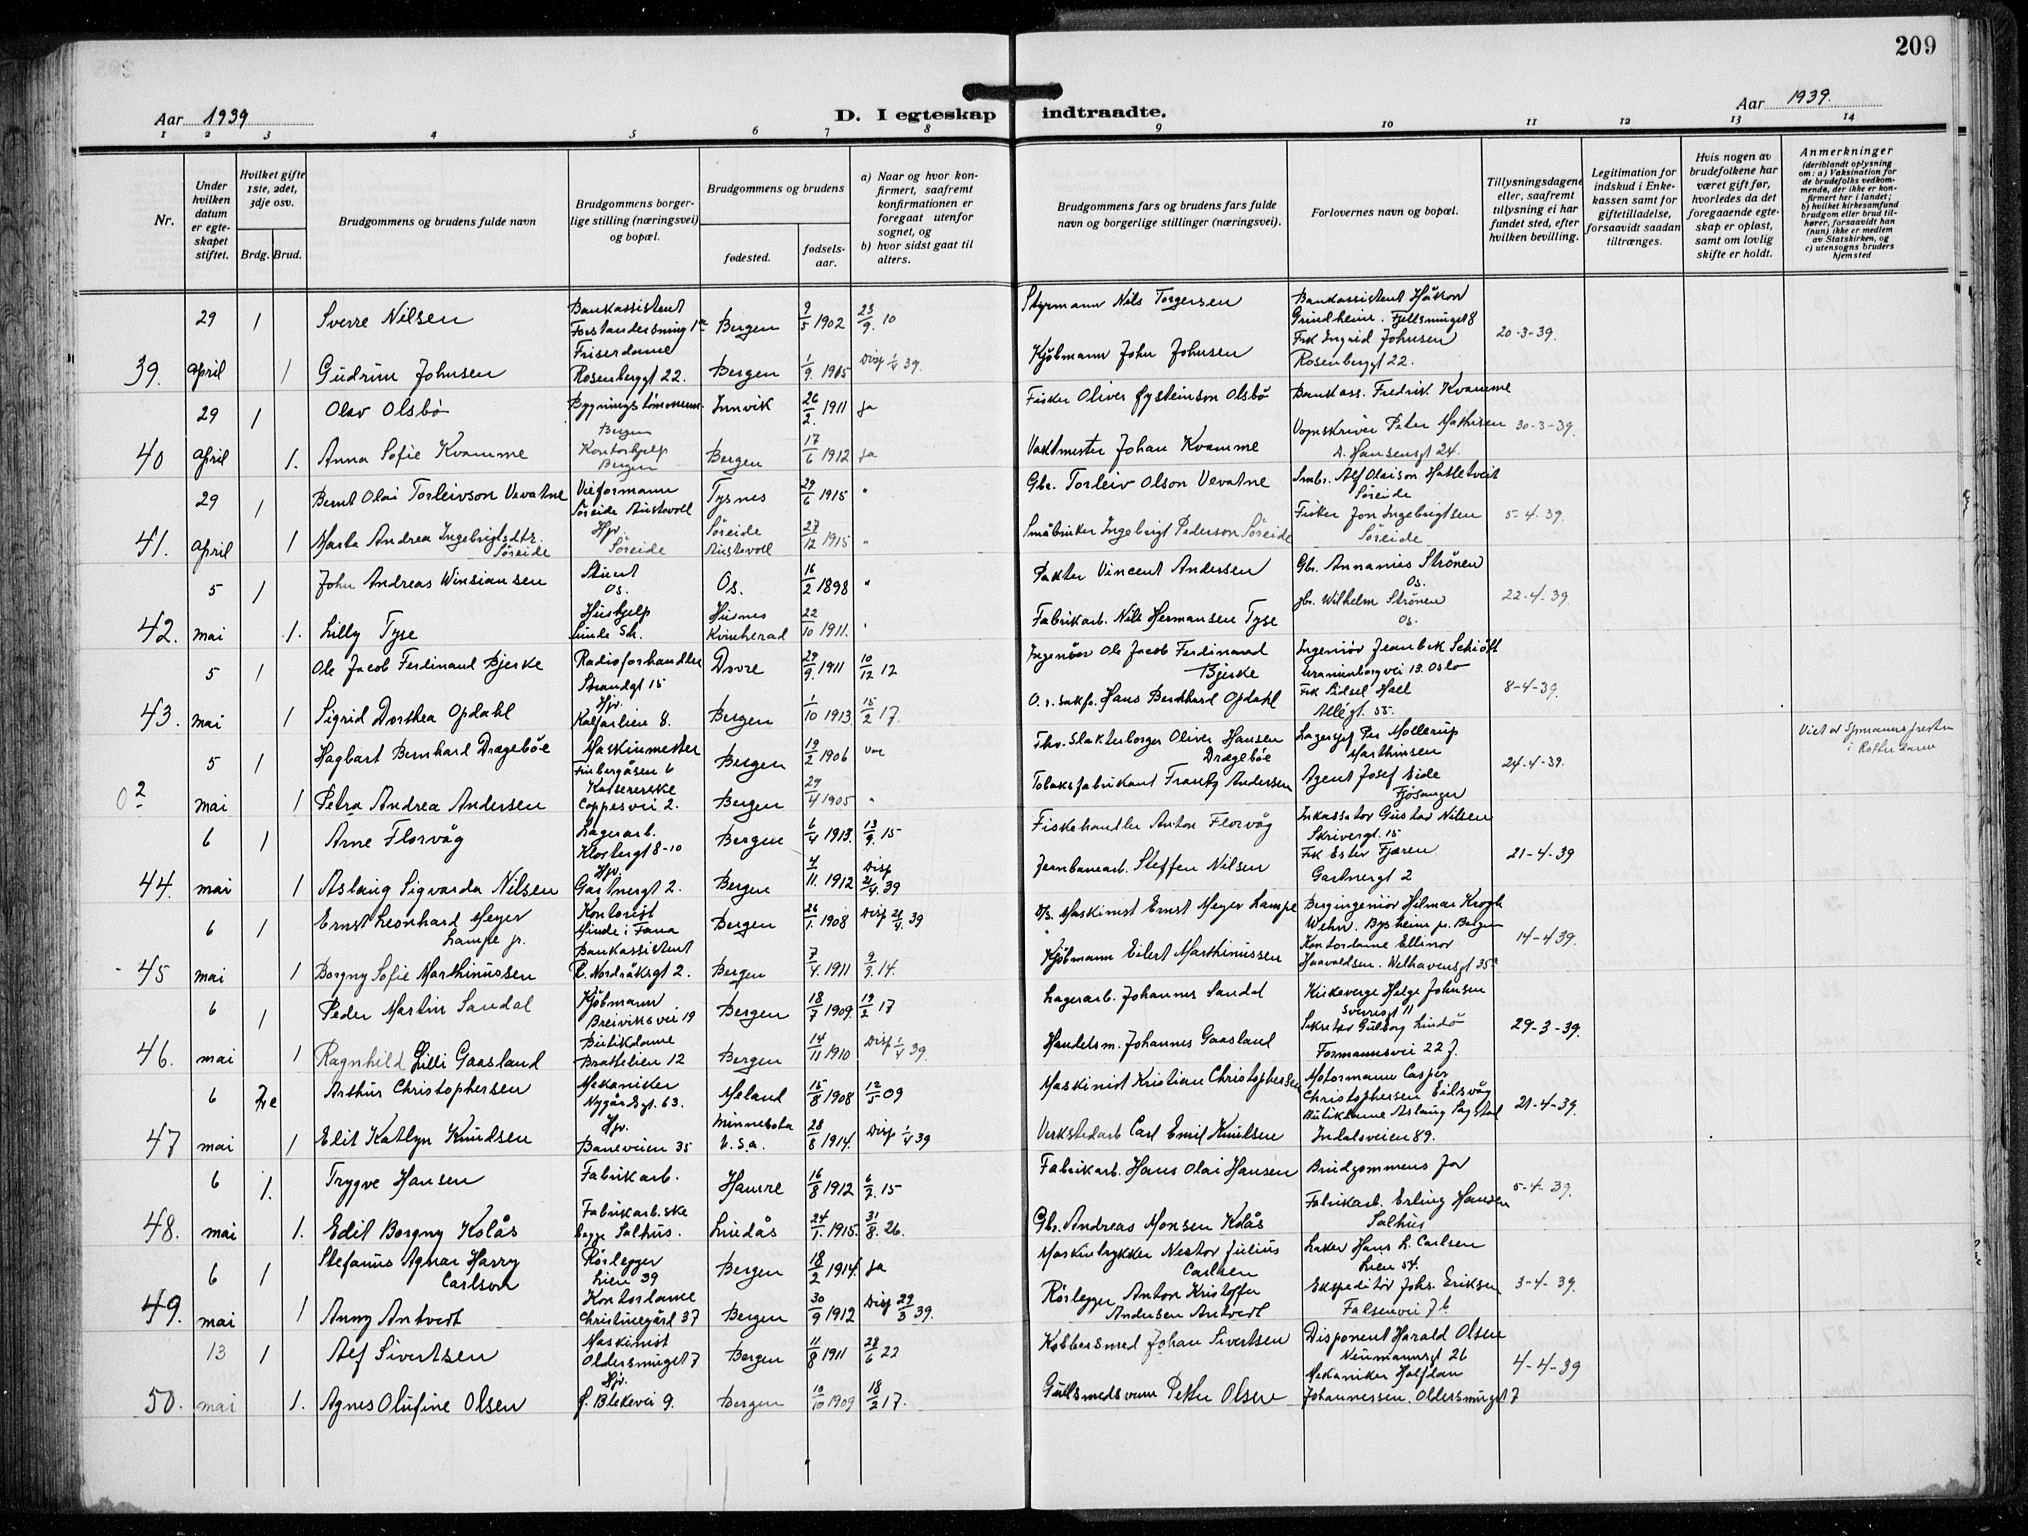 209
Aar 1939
D. I egteskap indtraadte.
Aar 1939.
1 2 3 4 5 6 7 8 9 10 11 12 13 14
Nr.
Under hvilken datum er egteskapet stiftet.
Hvilket gifte 1ste, 2det, 3dje osv.
Brdg. Brud.
Brudgommens og brudens fulde navn
Brudgommens borgerlige stilling (næringsvei) og bopæl.
Brudgommens og brudens
fødested.
fødselsaar.
a) Naar og hvor konfirmert, saafremt konfirmationen er foregaat utenfor sognet, og
b) hvor sidst gaat til alters.
Brudgommens fars og brudens fars fulde navn og borgerlige stillinger (næringsvei).
Forlovernes navn og bopæl.
Tillysningsdagene eller, saafremt tillysning ei har fundet sted, efter hvilken bevilling.
Legitimation for indskud i Enkekassen samt for giftetilladelse, forsaavidt saadan tiltrænges.
Hvis nogen av brudefolkene har været gift før, hvorledes da det foregaaende egteskap er opløst, samt om lovlig skifte er holdt.
Anmerkninger
(deriblandt oplysning om: a) Vaksination for de brudefolks vedkommende, der ikke er konfirmert her i landet; b) hvilket kirkesamfund brudgom eller brud tilhører, forsaavidt han (hun) ikke er medlem av Statskirken, og c) utensogns bruders hjemsted
29 1 Sverre Nilsen Bankassistent Bergen 9/5 1902 23/9 10 Styrmann Nils Torgersen Bankassistent Håkon Grindheim. Fjellsmuget 8 20-3-39.
39. April 1 Gudrun Johnsen Friserdame Rosenberggt 22. Bergen 1/9. 1905 Disp 1/4 39. Kjøbmann John Johnsen Frk Ingrid Johnsen Rosenberggt 22.
29 1 Olav Olsbø Innvik 26/2. 1911 ja Fisker Oliver Øysteinson Olsbø Bankass. Fredrik Kvamme 30-3-39.
40 April 1. Anna Sofie Kvamme Kontorhjelp Bergen Bergen 17/6 1912 ja Vaktmester Johan Kvamme Vognskriver Peter Mathisen D. Hansensgt 24.
29 1 Bernt Olai Torleivson Vevatne Veiformann Søreide Austevoll Tysnes 29/6 1915 " Gbr. Torleiv Olson Vevatne Smbr. Alf Olaison Søreide 5-4-39.
41. April 1 Marta Andrea Ingebrigtsdtr. Søreide Hjv. Søreide Søreide Austevoll 27/12 1915 " Småbruker Ingebrigt Pederson Søreide Fisker Jon Ingebrigtsen Søreide
5 1 John Andreas Winsiansen Os. Os. 16/2 1898 " Vincent Andersen Gbr. Annanias Strønen Os. 22-4-39.
42. mai 1. Lilly Tyse Hushjelp Husnes Kvinherad 22/10 1911. " Fabrikarb. Nils Hermansen Tyse gbr. Wilhelm Strønen Os.
5 1 Ole Jacob Ferdinand Bjerke Radioforhandler Strandgt 15 Dovre 29/9. 1911 10/12 12 Ingeniør Ole Jacob Ferdinand Bjerke Ingeniør Schiøtt Uranienborgvei 13. Oslo 8-4-39.
43. mai 1 Sigrid Dorthea Opdahl Hjv. Kalfarlien 8. Bergen 1/10 1913. 15/2 17. O.r.sakf. Hans Bernhard Opdahl Frk Sidsel Allégt. 55.
5 1 Hagbart Bernhard Dragebøe Maskinmester 6 Bergen 19/2 1906 Slakterborger Oliver Hansen Dragebøe Per Mollerup Marthinsen 24-4-39. Viet av Sjømannspresten i Rotterdam
0 2 mai 1 Petra Andrea Andersen Kasererske Bergen 29/4 1905 " Tobaksfabrikant Frantz Andersen Agent Josef Eide Fjøsanger
6 1 Arne Florvåg Lagerarb. Klostergt 8-10 Bergen 6/4 1913. 13/9. 15 Fiskehandler Anton Florvåg Inkassator Gustav Nilsen Skrivergt. 15 21-4-39
44. mai 1 Aslaug Sigvarda Nilsen Hjv. Gartnergt 2. Bergen 4/11. 1912 Disp 21/4. 39 Jernbanearb. Steffen Nilsen Frk Ester Fjæren Gartnergt 2
6 1 Ernst Leonhard Meyer Lampe jr. Kontorist Minde i Fana Bergen 26/1. 1908 Disp 21/4 39 Maskinist Ernst Meyer Lampe Bergingeniør Hilmar Krogh 14-4-39.
45 mai 1 Borgny Sofie Marthinussen Bankassistent R. Nordråksgt 2. Bergen 7/4. 1911 9/9. 14. Kjøbmann Eilert Marthinussen Kontordame Ellinor Haavaldsen. Welhavensgt 35
6 1 Peder Martin Sandal Kjøbmann Breiviksvei 19 Bergen 18/7 1909. 19/2 17 Lagerarb. Johannes Sandal Kirkeverge Helge Johnsen Sverresgt 11 29-3-39.
46. mai 1 Ragnhild Lilli Gaasland Butikdame Brattelien 12 Bergen 14/11 1910 Disp 1/4 39. Handelsm. Johannes Gaasland Sekretær Gulborg Lindø Formannsvei 22
6 2re Arthur Christophersen Mekaniker Nygårdsgt. 63. Meland 15/8 1908 12/5 09 Maskinist Kristian Christophersen Motormann Casper Christophersen Eidsvåg 21-4-39.
47 mai 1 Edit Katlyn Knudsen Hjv. Baneveien 35 Minnesota U.S.a. 28/8 1914. Disp 1/4 39 Verkstedarb Carl Emil Knutsen Butikdame Aslaug Indalsveien 89.
6 1. Trygve Hansen Fabrikarb. Hamre 16/8 1912 6/2. 15 Fabrikarb. Hans Olai Hansen Brudgommens far 5-4-39.
48. mai 1. Edit Borgny Kolås Fabrikarb.ske begge Salhus. Lindås 24/1. 1915. 31/8. 26. Gbr. Andreas Monsen Kolås Fabrikarb. Erling Hansen Salhus
6 1 Stefanus Agnar Harry Carlson Rørlegger Lien 39 Bergen 18/2 1914. ja Maskintrykker Nestor Julius Carlsen Hans L. Carlsen Lien 54. 3-4-39.
49. mai 1 Anny Antvedt Kontordame Christinegård 37 Bergen 30/9 1912 Disp 29/3 39. Rørlegger Anton Kristoffer Andersen Antvedt Ekspeditør Johs. Eriksen Falsensvei 7b
13 1 Alf Sivertsen Maskinist Oldersmuget 7 Bergen 11/8 1911 23/6 22 Kobbersmed Johan Sivertsen Disponent Harald Olsen Neumannsgt 26 4-4-39
50. mai 1. Agnes Olufine Olsen Hjv. f. Blekevei 9. Bergen 10/10 1909 18/2 17. Gullsmedsvenn Petter Olsen Mekaniker Halfdan Johannessen. Oldersmuget 7